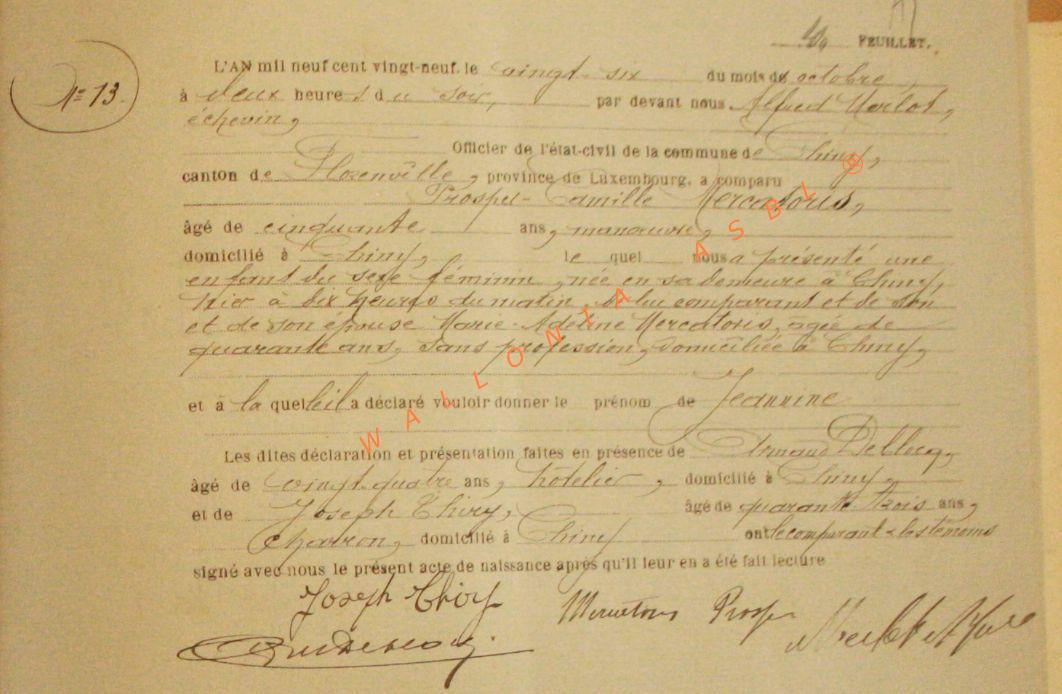 FEUILLET.
Nº 13.
L'AN mil neuf cent vingt-neuf, le vingt-six du mois de octobre,
à deux heures du soir, par devant nous Alfred Merlot,
échevin,
Officier de l'état-civil de la commune de Chiny,
canton de Florenville, province de Luxembourg, a comparu
Prosper-Camille Mercatoris,
âgé de cinquante ans, manœuvre,
domicilié à Chiny, lequel nous a présenté une
enfant du sexe féminin, née en sa demeure à Chiny,
hier à dix heures du matin, de lui comparant et de son
et de son épouse Marie-Adeline Mercatoris, agée de
quarante ans, sans profession, domiciliée à Chiny,
et à laquelle il a déclaré vouloir donner le prénom de Jeannine
Les dites déclaration et présentation faites en présence de Armand Deblocq,
âgé de vingt-quatre ans, hôtelier, domicilié à Chiny,
et de Joseph Thiry, âgé de quarante trois ans,
charron, domicilié à Chiny ont le comparant & les témoins
signé avec nous le présent acte de naissance après qu'il leur en a été fait lecture
Joseph Thiry Mercatoris Prosper
WALLONIA ASBL